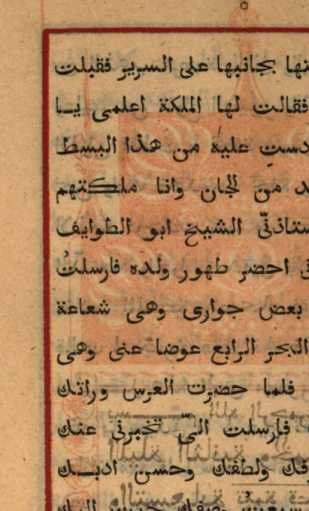 بجانبها على السرير فقبلت
فقالت لها الملكة اعلمى يا
دست عليه من هذا البسط
من الجان وانا ملكتهم
الشيخ ابو الطوايف
احضر طهور ولده فارسلت
بعض جوارى وهى شعاعة
البحر الرابع عوضا عنى وهى
فلما حضرت العرس وراتك
فارسلت الىّ تخبرنى عنك
ولطفك وحسن ادبك